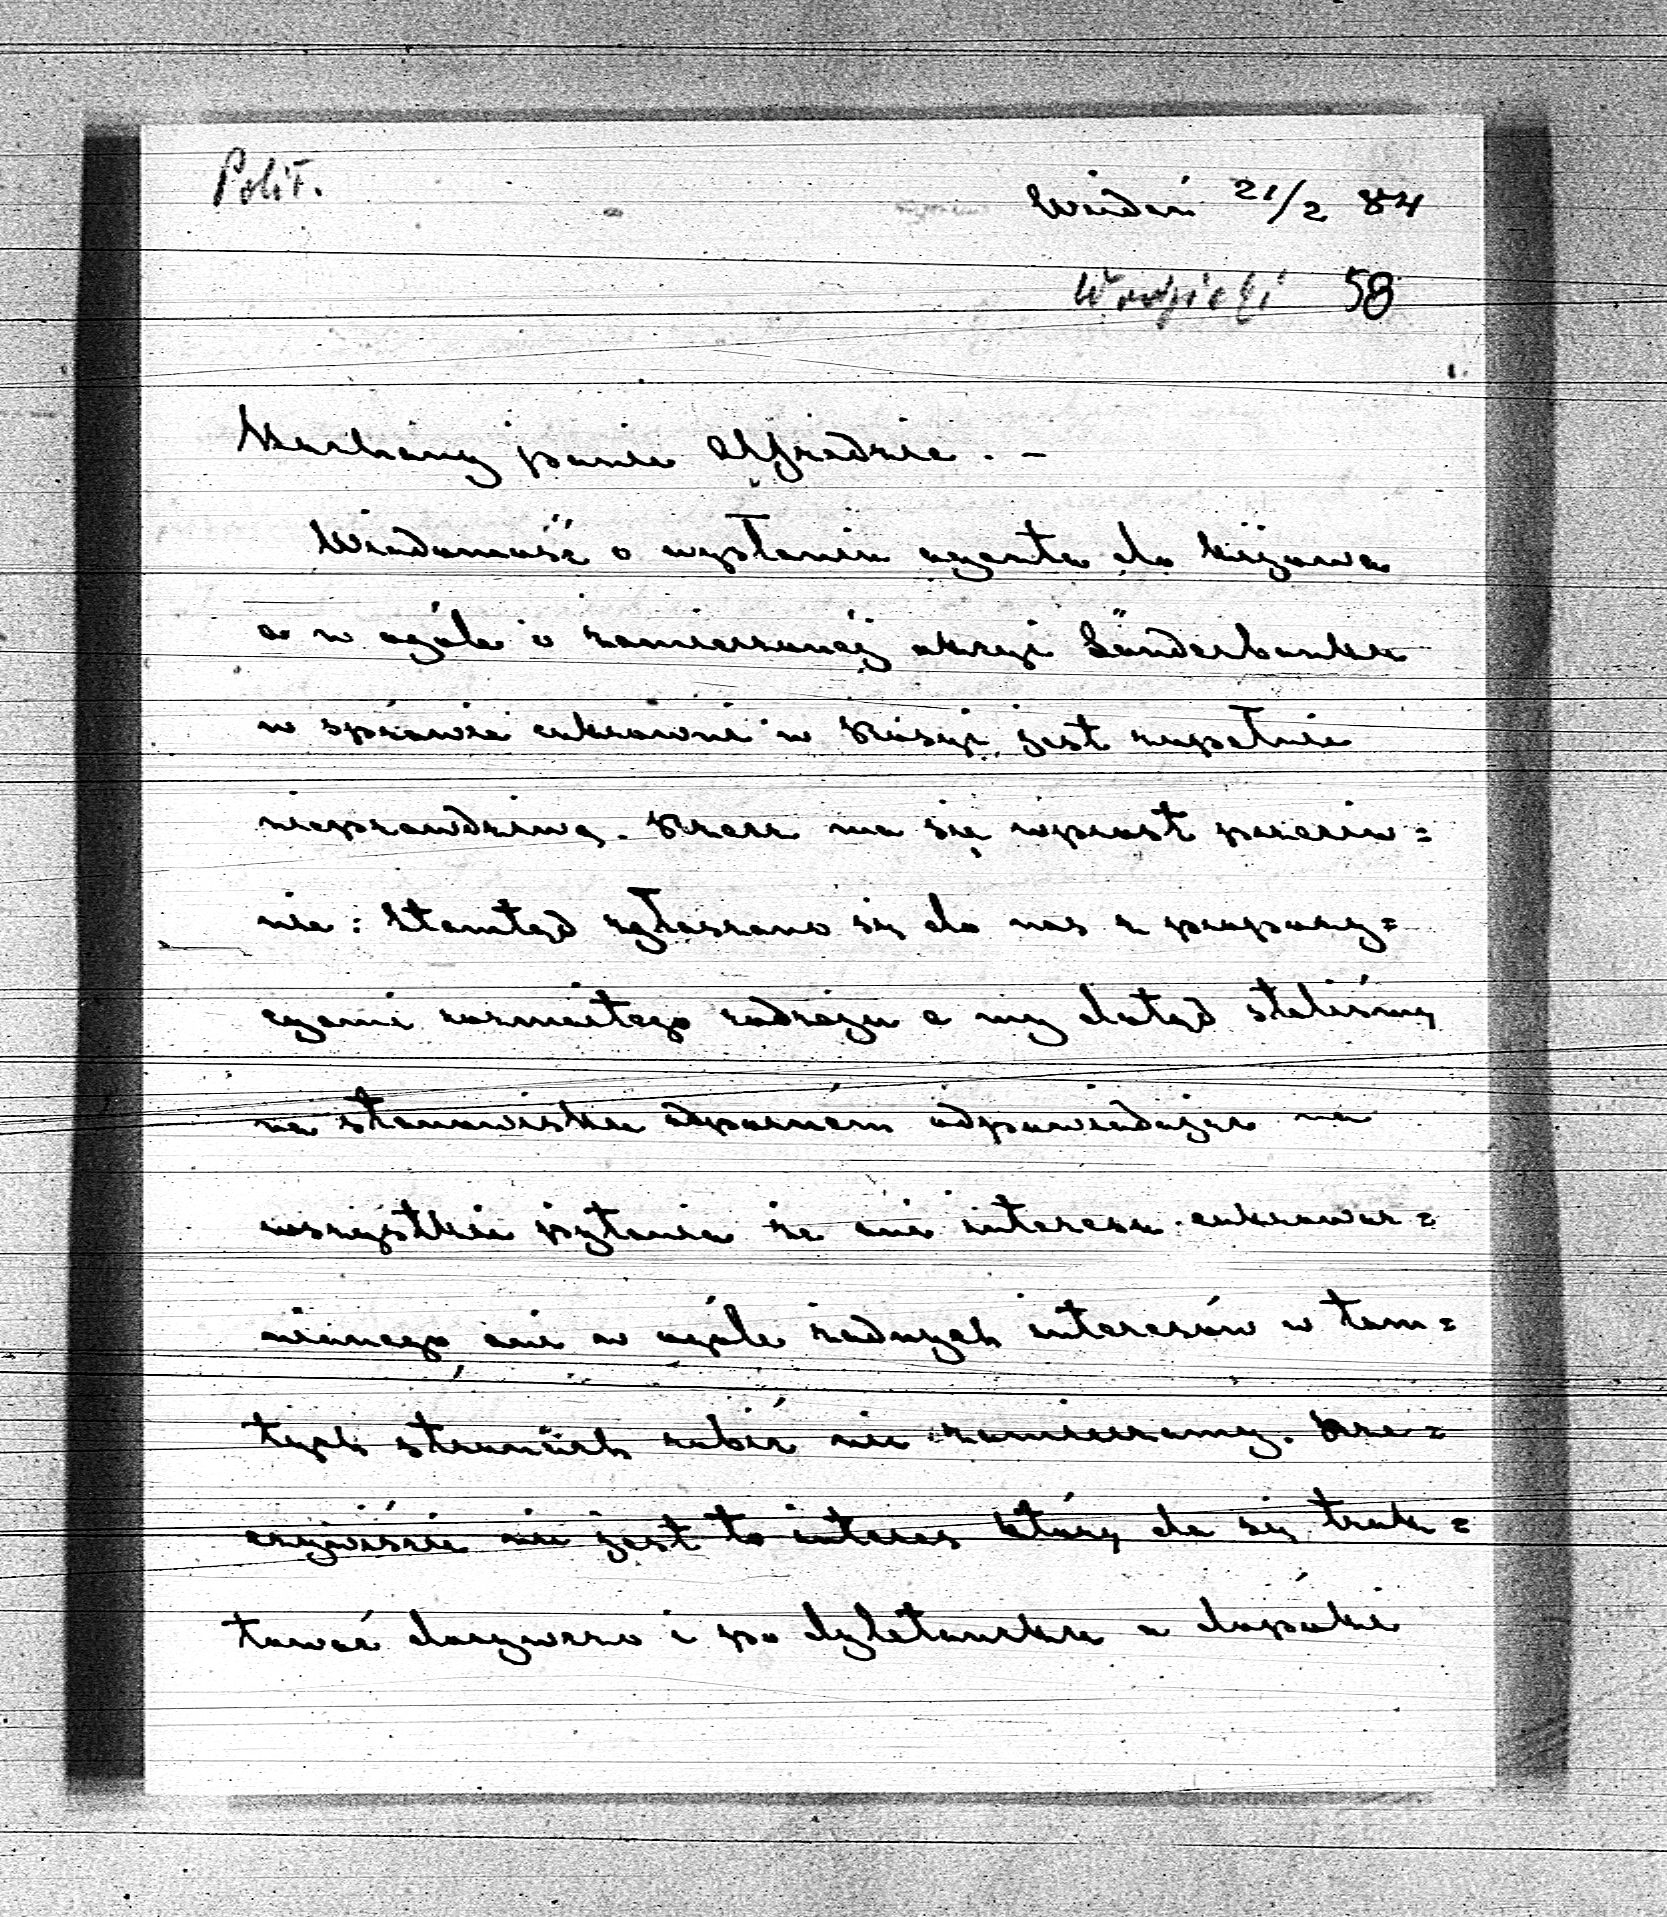 Polit.
Wiedeń 21/2 84
Wodzicki 58
1.
Kochany panie Alfredzie. -
Wiadomość o wysłaniu agenta do Kijowa
a w ogóle o zamierzonéj akcyi Länderbanku
w sprawie cukrowni w Rosyi jest zupełnie
nieprawdziwą. Rzecz ma się wprost przeciw=
nie: Ztamtąd zgłaszano się do nas z propozy=
cyami rozmaitego rodzaju a my dotąd staliśmy
na stanowisku odporném odpowiadając na
wszystkie pytania że ani interesu cukrowar=
nianego ani w ogóle żadnych interesów w tam=
tych stronach robić nie zamierzamy. Rze=
czywiście nie jest to interes który da się trak=
tować dorywczo i po dyletancku a dopóki